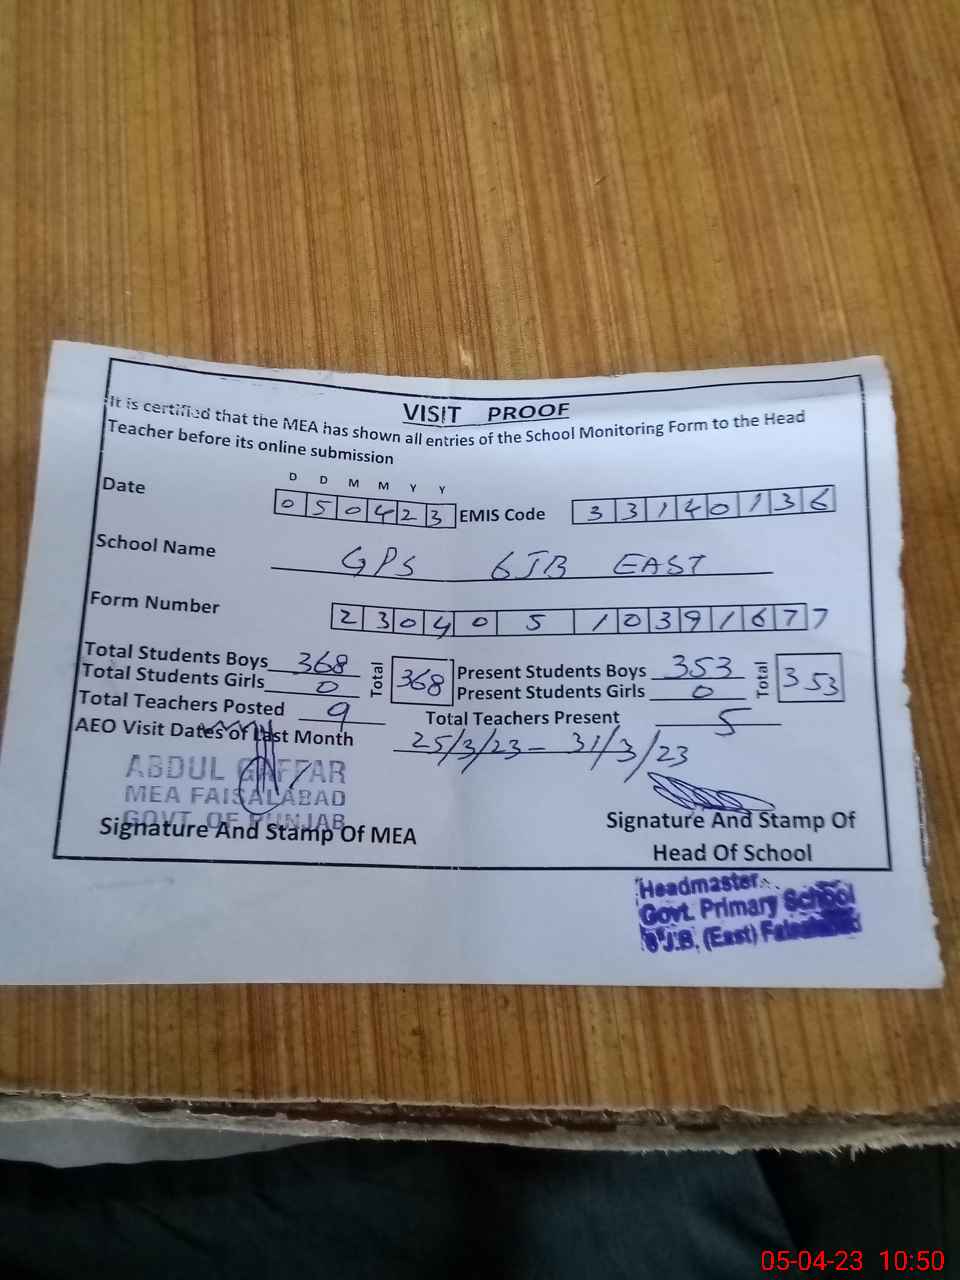 VISIT PROOF
It is certified that the MEA has shown all entries of the School Monitoring Form to the Head
Teacher before its online submission
D D M M Y Y
Date 0 5 0 4 2 3 EMIS Code 3 3 1 4 0 1 3 6
School Name GPS 6JB EAST
Form Number 2 3 0 4 0 5 1 0 3 9 1 6 7 7
Total Students Boys 368 Total 368 Present Students Boys 353 Total 353
Total Students Girls 0 Present Students Girls 0
Total Teachers Posted 9 Total Teachers Present 5
AEO Visit Dates of Last Month 25/3/23 - 31/3/23
ABDUL GAFFAR
MEA FAISALABAD
GOVT. OF PUNJAB
Signature And Stamp Of MEA
Signature And Stamp Of
Head Of School
Headmaster
Govt. Primary School
J.B. (East)
05-04-23 10:50